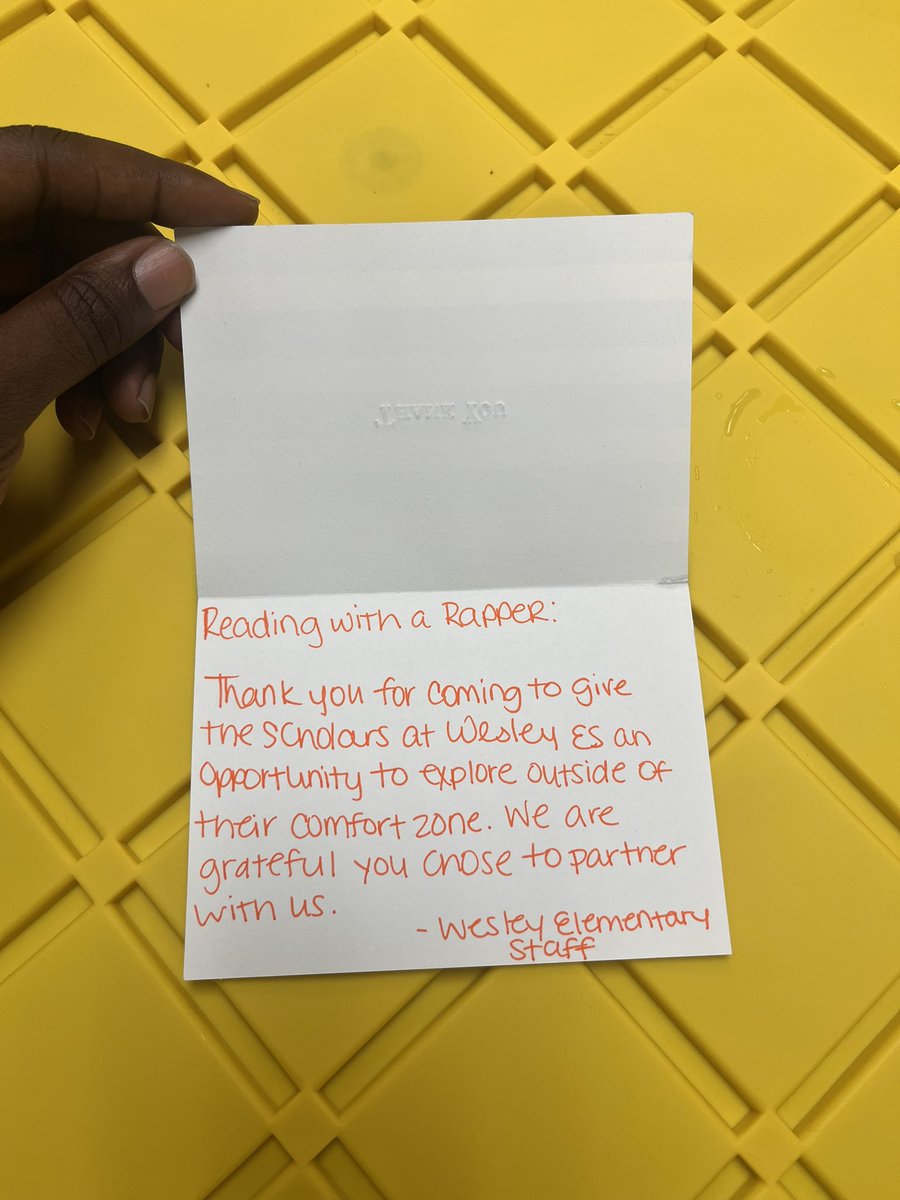 Thank You
Reading with a Rapper:
Thank you for coming to give
the scholars at Wesley ES an
opportunity to explore outside of
their comfort zone. We are
grateful you chose to partner
with us.
- Wesley Elementary
Staff